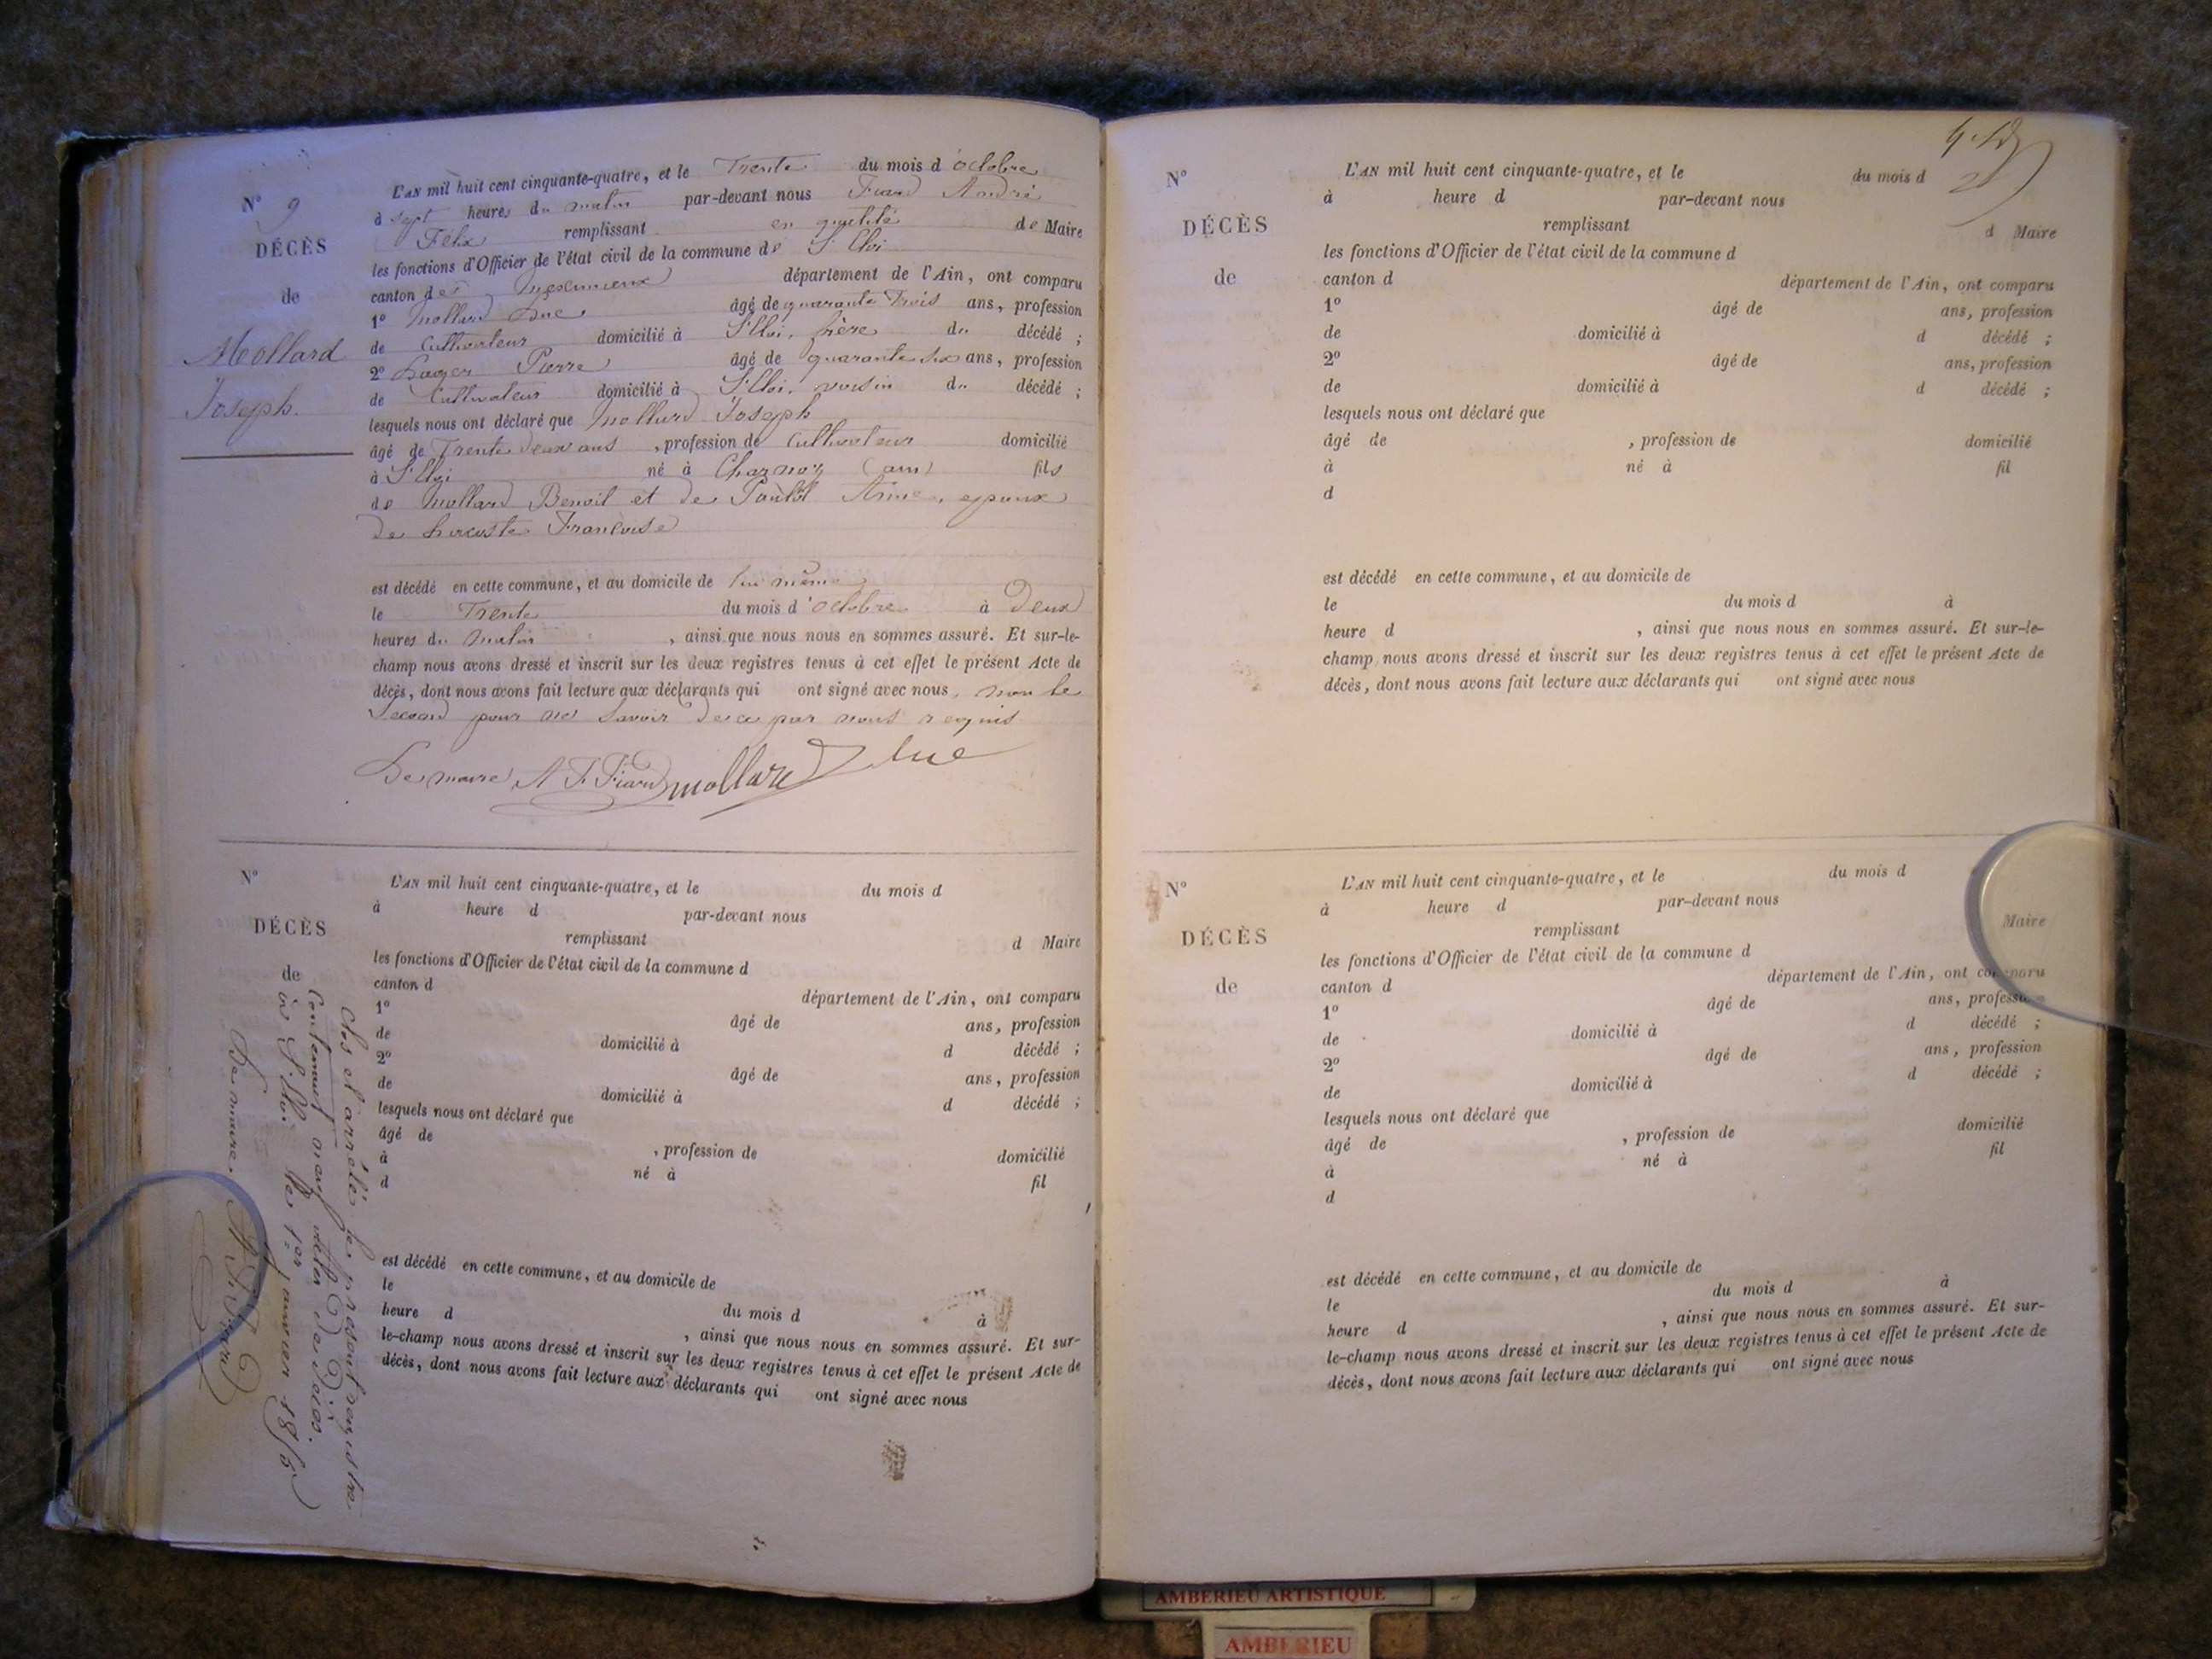 N° 9
DÉCÈS
de
Mollard
Joseph.
L'AN mil huit cent cinquante-quatre, et le Trente du mois d'octobre
à sept heures du matin par-devant nous André
Félix remplissant en qualité de Maire
les fonctions d'Officier de l'état civil de la commune de St Eloi
canton de département de l'Ain, ont comparu
1° Mollard Luc âgé de quarante trois ans, profession
de Cultivateur domicilié à St Eloi, frère du décédé ;
2° Pierre âgé de quarante six ans, profession
de Cultivateur domicilié à St Eloi, voisin du décédé ;
lesquels nous ont déclaré que Mollard Joseph
âgé de Trente deux ans, profession de Cultivateur domicilié
à St Eloi né à Charnoz (ain) fils
de Mollard Benoit et de , epoux
de Françoise
est décédé en cette commune, et au domicile de lui même
le Trente du mois d'octobre à Deux
heures du Matin, ainsi que nous nous en sommes assuré. Et sur-le-
champ nous avons dressé et inscrit sur les deux registres tenus à cet effet le présent Acte de
décès, dont nous avons fait lecture aux déclarants qui ont signé avec nous, non le
Second pour ne Savoir de ce par nous requis
Le maire, mollard luc
N°
DÉCÈS
de
L'AN mil huit cent cinquante-quatre, et le du mois d
à heure d par-devant nous
remplissant d Maire
les fonctions d'Officier de l'état civil de la commune d
canton d département de l'Ain, ont comparu
1° âgé de ans, profession
de domicilié à d décédé ;
2° âgé de ans, profession
de domicilié à d décédé ;
lesquels nous ont déclaré que
âgé de , profession de domicilié
à né à fil
d
est décédé en cette commune, et au domicile de
le du mois d à
heure d , ainsi que nous nous en sommes assuré. Et sur-
le-champ nous avons dressé et inscrit sur les deux registres tenus à cet effet le présent Acte de
décès, dont nous avons fait lecture aux déclarants qui ont signé avec nous
Clos et arrêté le présent registre
Contenant neuf actes de décès.
à St Eloi le 1er janvier
Le maire
N°
DÉCÈS
de
L'AN mil huit cent cinquante-quatre, et le du mois d
à heure d par-devant nous
remplissant d Maire
les fonctions d'Officier de l'état civil de la commune d
canton d département de l'Ain, ont comparu
1° âgé de ans, profession
de domicilié à d décédé ;
2° âgé de ans, profession
de domicilié à d décédé ;
lesquels nous ont déclaré que
âgé de , profession de domicilié
à né à fil
d
est décédé en cette commune, et au domicile de
le du mois d à
heure d , ainsi que nous nous en sommes assuré. Et sur-le-
champ nous avons dressé et inscrit sur les deux registres tenus à cet effet le présent Acte de
décès, dont nous avons fait lecture aux déclarants qui ont signé avec nous
N°
DÉCÈS
de
L'AN mil huit cent cinquante-quatre, et le du mois d
à heure d par-devant nous
remplissant Maire
les fonctions d'Officier de l'état civil de la commune d
canton d département de l'Ain, ont comparu
1° âgé de ans, profession
de domicilié à d décédé ;
2° âgé de ans, profession
de domicilié à d décédé ;
lesquels nous ont déclaré que
âgé de , profession de domicilié
à né à fil
d
est décédé en cette commune, et au domicile de
le du mois d à
heure d , ainsi que nous nous en sommes assuré. Et sur-
le-champ nous avons dressé et inscrit sur les deux registres tenus à cet effet le présent Acte de
décès, dont nous avons fait lecture aux déclarants qui ont signé avec nous
AMBERIEU ARTISTIQUE
AMBERIEU